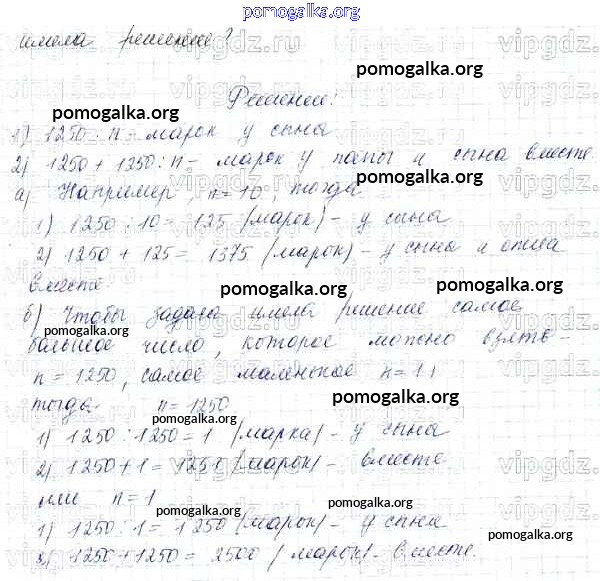 pomogalka.org
имела решение?
pomogalka.org
Решение:
pomogalka.org
1) 1250 : n - марок у сына
2) 1250 + 1250 : n - марок у папы и сына вместе.
pomogalka.org
а) Например, n = 10, тогда
1) 1250 : 10 = 125 (марок) - у сына
pomogalka.org
2) 1250 + 125 = 1375 (марок) - у сына и отца
вместе.
pomogalka.org
б) Чтобы задача имела решение самое
pomogalka.org
большое число, которое можно взять -
n = 1250, самое маленькое n = 1,
pomogalka.org
тогда n = 1250
pomogalka.org
1) 1250 : 1250 = 1 (марка) - у сына
pomogalka.org
2) 1250 + 1 = 1251 (марок) - вместе
или n = 1
pomogalka.org
1) 1250 : 1 = 1250 (марок) - у сына
pomogalka.org
2) 1250 + 1250 = 2500 (марок) - вместе.
pomogalka.org
vipgdz.ru